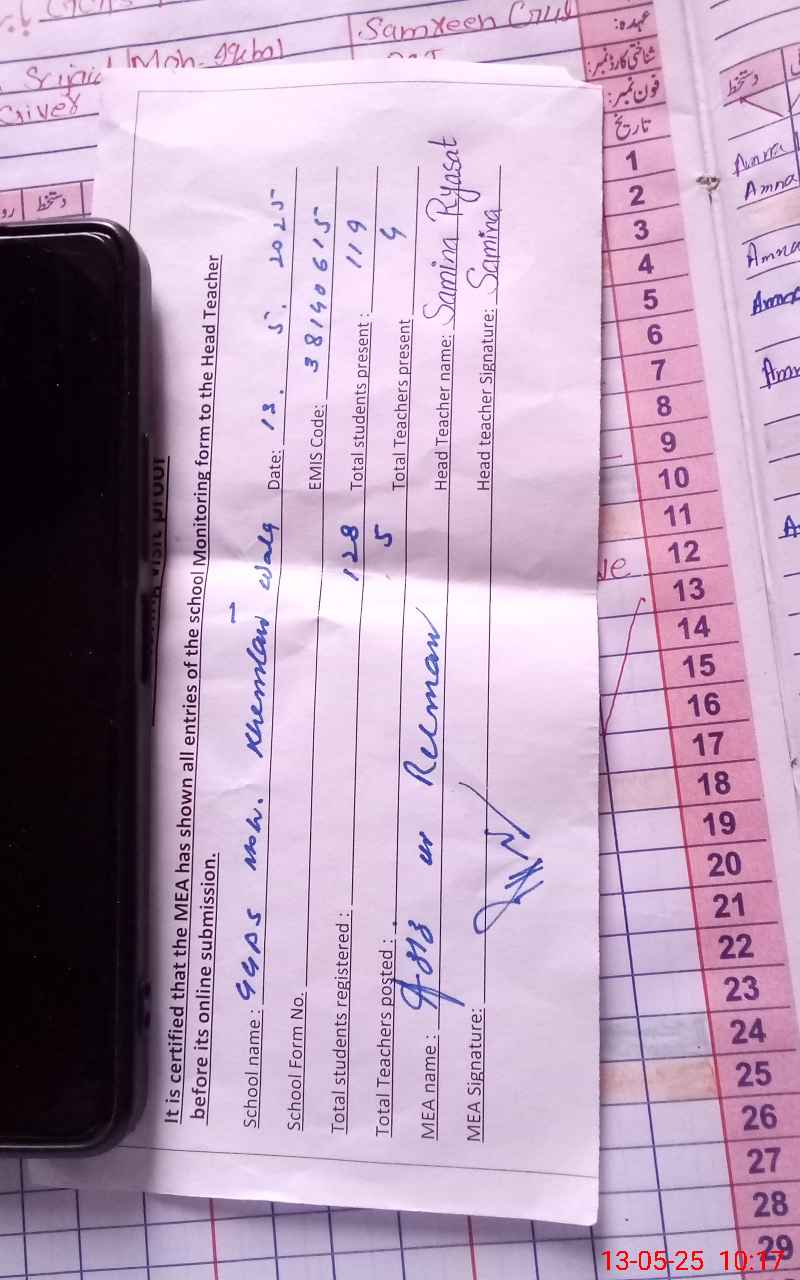 It is certified that the MEA has shown all entries of the school Monitoring form to the Head Teacher
before its online submission.
School name : GGPS Moh. Khemlan Wala Date: 13. 5. 2025
School Form No. EMIS Code: 38140615
Total students registered : 128 Total students present : 119
Total Teachers posted : 5 Total Teachers present 4
MEA name : ur Rehman Head Teacher name: Samina Ryasat
MEA Signature: Head teacher Signature: Samina
Samreen
عہدہ:
شناختی کارڈ نمبر:
فون نمبر:
تاریخ
دستخط
دستخط
1
2
3
4
5
6
7
8
9
10
11
12
13
14
15
16
17
18
19
20
21
22
23
24
25
26
27
28
29
Amna
Amna
Amna
Amna
13-05-25 10:17